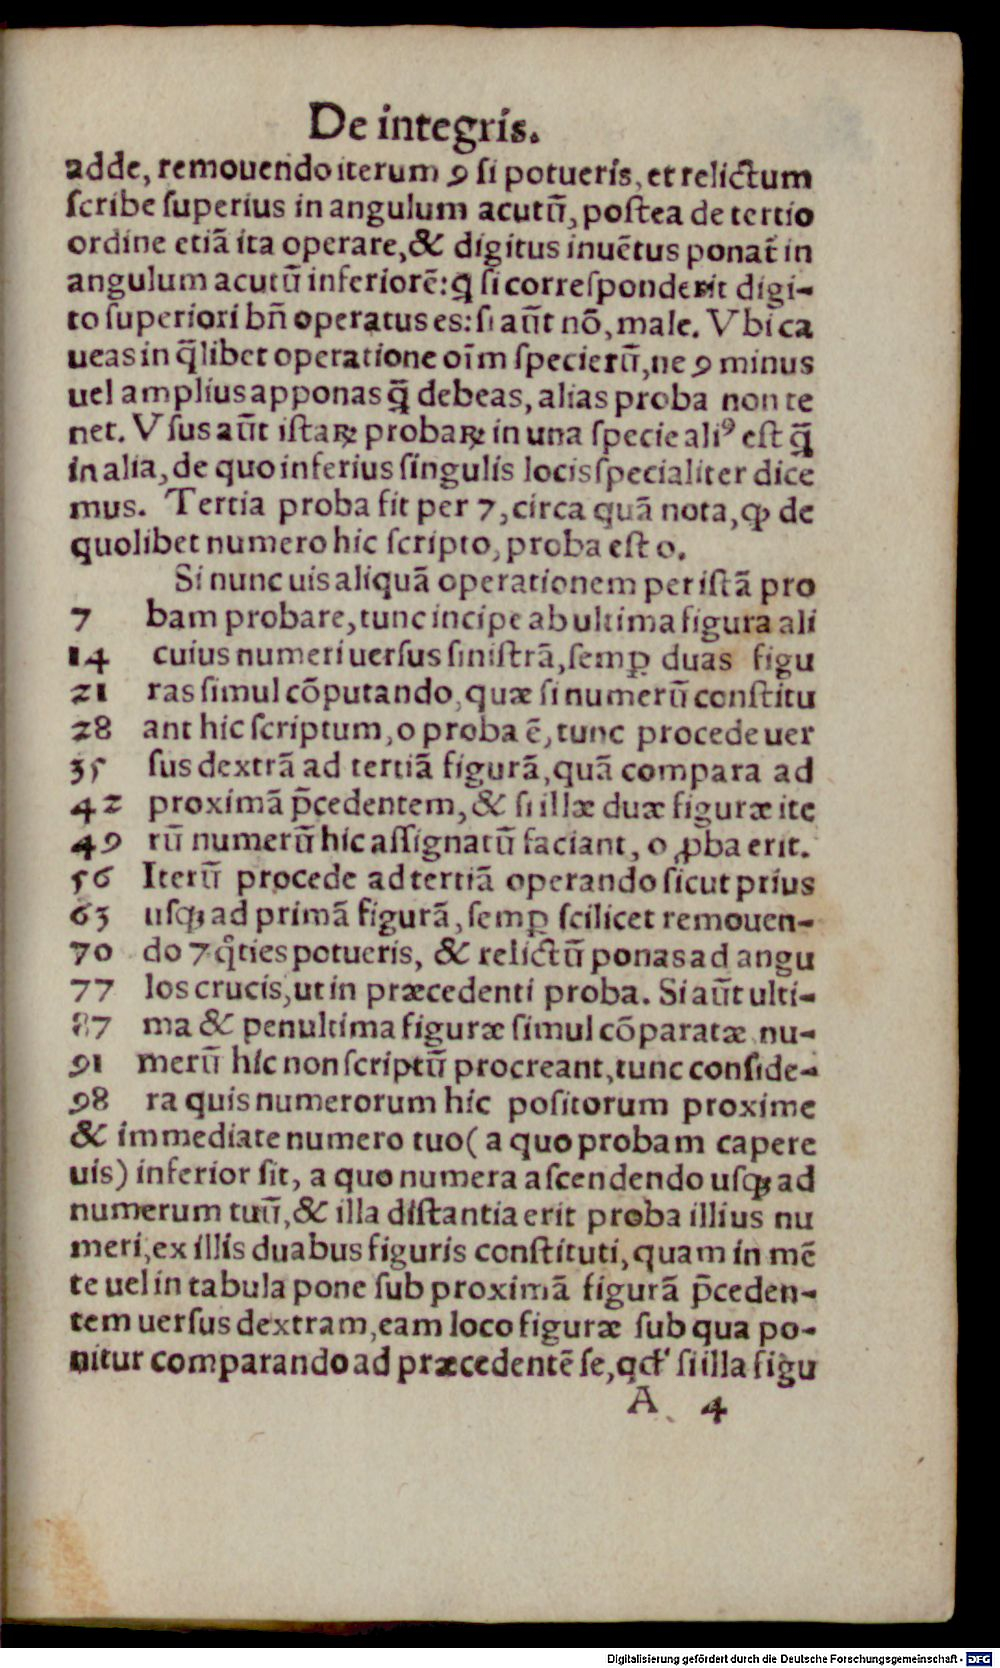 De integris.
adde, remouendo iterum 9 si potueris, et relictum
scribe superius in angulum acutū, postea de tertio
ordine etiā ita operare, & digitus inuētus ponat̄ in
angulum acutū inferiorē: ꝙ si corresponderit digi-
to superiori bn̄ operatus es: si aūt nō, male. Vbi ca
ueas in q̄libet operatione oīm specierū, ne 9 minus
uel amplius apponas q̄ debeas, alias proba non te
net. Vsus aūt istaꝝ probaꝝ in una specie aliꝰ est q̄
in alia, de quo inferius singulis locis specialiter dice
mus. Tertia proba fit per 7, circa quā nota, ꝙ de
quolibet numero hic scripto, proba est 0.
Si nunc uis aliquā operationem per istā pro
7 bam probare, tunc incipe ab ultima figura ali
14 cuius numeri uersus sinistrā, semꝑ duas figu
21 ras simul cōputando, quæ si numerū constitu
28 ant hic scriptum, 0 proba ē, tunc procede uer
35 sus dextrā ad tertiā figurā, quā compara ad
42 proximā p̄cedentem, & si illæ duæ figuræ ite
49 rū numerū hic assignatū faciant, 0 ꝓba erit.
56 Iterū procede ad tertiā operando sicut prius
63 usqꝫ ad primā figurā, semꝑ scilicet remouen-
70 do 7 qͥties potueris, & relictū ponas ad angu
77 los crucis, ut in præcedenti proba. Si aūt ulti-
87 ma & penultima figuræ simul cōparatæ nu-
91 merū hic non scriptū procreant, tunc conside-
98 ra quis numerorum hic positorum proxime
& immediate numero tuo ( a quo probam capere
uis ) inferior sit, a quo numera ascendendo usqꝫ ad
numerum tuū, & illa distantia erit proba illius nu
meri, ex illis duabus figuris constituti, quam in mē
te uel in tabula pone sub proximā figurā p̄ceden-
tem uersus dextram, eam loco figuræ sub qua po-
nitur comparando ad præcedentē se, qđ si illa figu
A 4
Digitalisierung gefördert durch die Deutsche Forschungsgemeinschaft - DFG